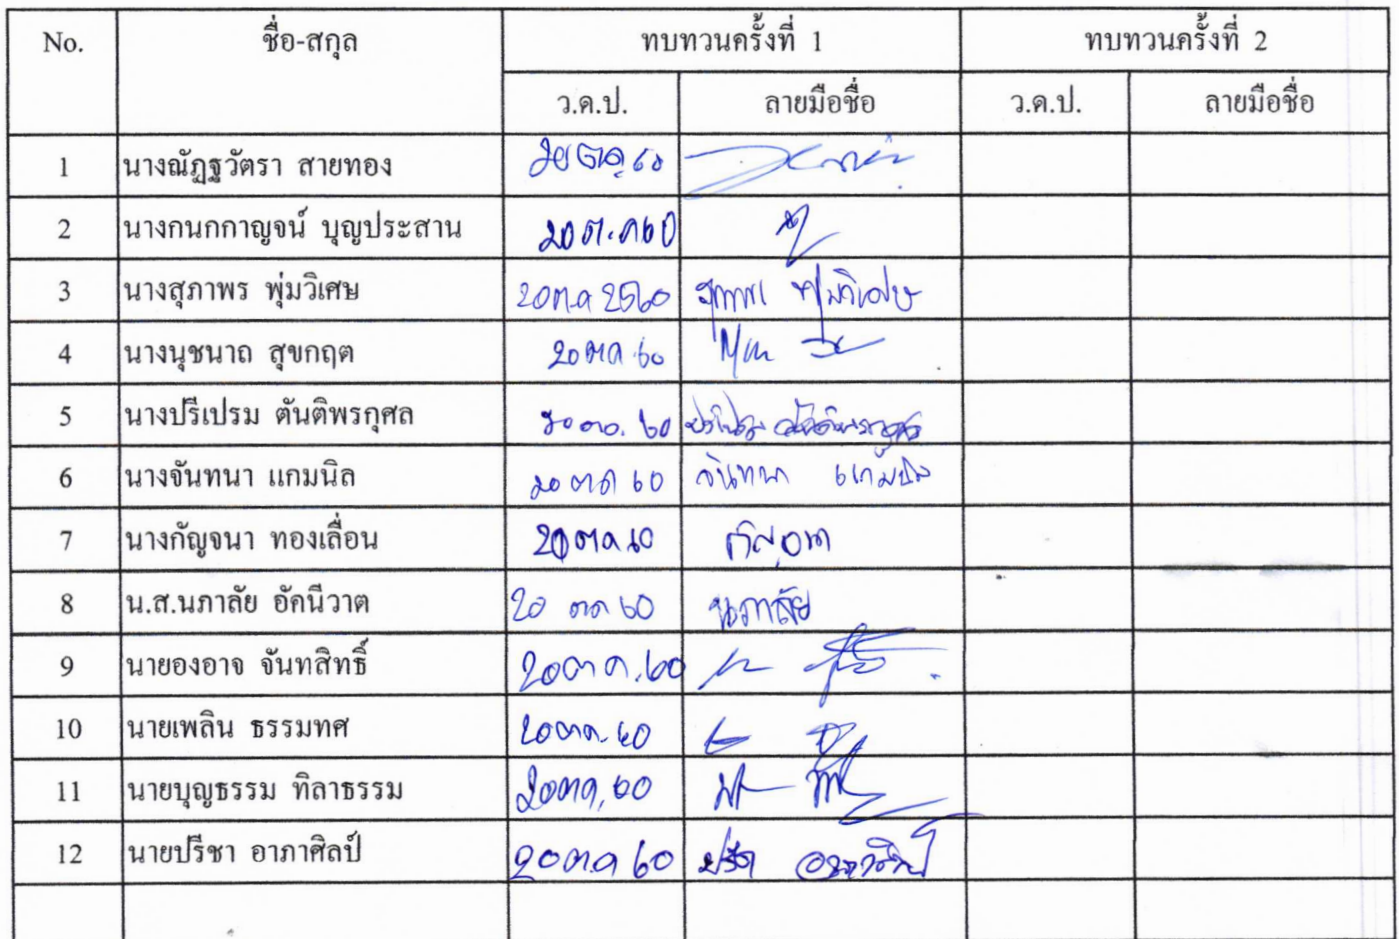 No. ชื่อ-สกุล ทบทวนครั้งที่ 1 ทบทวนครั้งที่ 2
ว.ด.ป. ลายมือชื่อ ว.ด.ป. ลายมือชื่อ
1 นางณัฏฐวัตรา สายทอง
2 นางกนกกาญจน์ บุญประสาน 20 ต.ค 60
3 นางสุภาพร พุ่มวิเศษ 20 ต.ค 2560 สุภาพร พุ่มวิเศษ
4 นางนุชนาถ สุขกฤต 20 ตค 60
5 นางปรีเปรม ตันติพรกุศล 20 ตค. 60 ปรีเปรม ตันติพรกุศล
6 นางจันทนา แกมนิล 20 ตค 60 จันทนา แกมนิล
7 นางกัญจนา ทองเลื่อน 20 ตค 60
8 น.ส.นภาลัย อัคนีวาต 20 ตค 60 นภาลัย
9 นายองอาจ จันทสิทธิ์ 20 ตค.60
10 นายเพลิน ธรรมทศ 20 ตค.60
11 นายบุญธรรม ทิลาธรรม 20 ตค.60
12 นายปรีชา อาภาศิลป์ 20 ต.ค 60 ปรีชา อาภาศิลป์